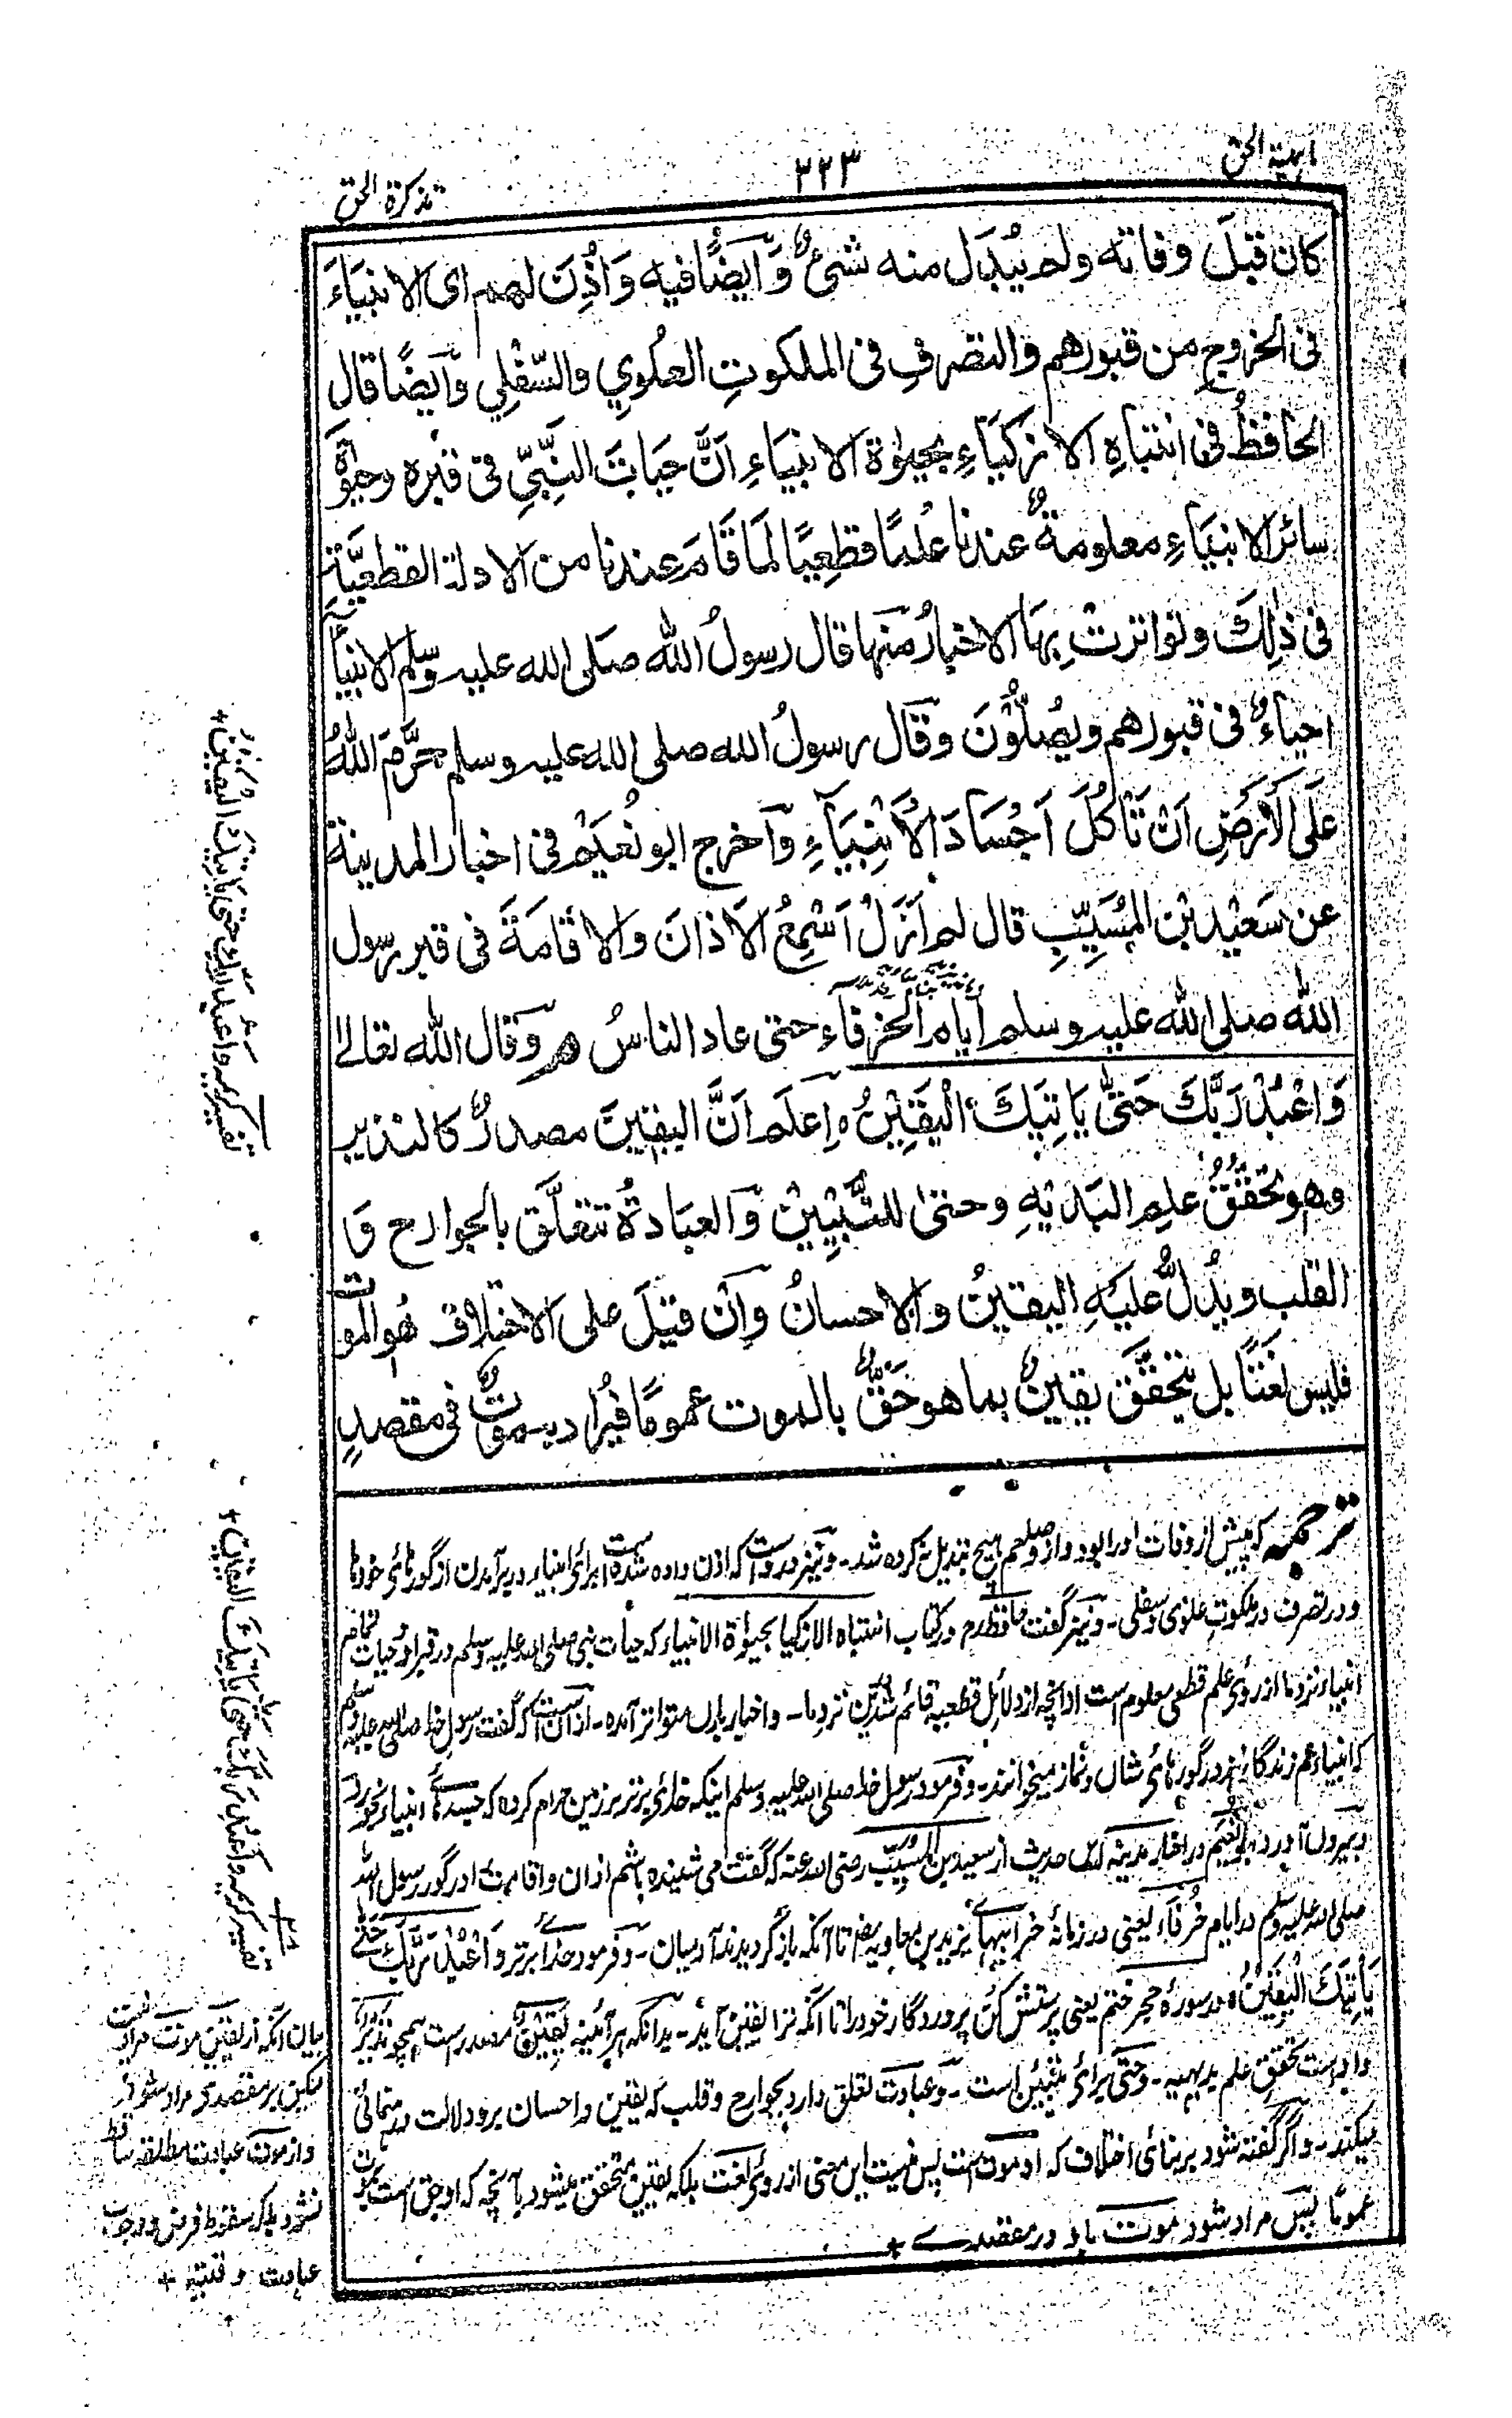 ماہیۃ الحق
۲۲۳
تذکرۃ الحق
كان قبلَ وفاته ولم يُبدَل منه شیءٌ وَّايضًا فيه وَاُذِنَ لهم ای الانبیَاءَ
فی الخروجِ من قبورهم والتصرفِ فی الملكوتِ العُلوِی والسّفْلِی وَايضًا قال
الحافظُ فی انتباہِ الازكیَاءِ بحیٰوۃ الانبیَاءِ اَنَّ حیَاتَ النَّبِیِّ فی قبرہ وحیٰوۃَ
سائر الانبیَاءِ معلومةٌ عندنا عِلمًا قطعِیًا لمَا قَامَ عندنا من الادلة القطعیَّة
فی ذٰلِكَ وتواترتْ بِهَا الاخبارُ منها قال رسولُ اللّٰہ صَلی اللہ علیہ وسلم الانبیَآءُ
احیاءٌ فی قبورهم ویُصَلُّوْنَ وَقَال رسولُ اللہ صلی اللہ علیہ وسلم حَرَّمَ اللّٰہُ
عَلَی الْاَرْضِ اَنْ تَاْكُلَ اَجْسَادَ الْاَنْبِیَآءِ وَاَخرج ابو نُعَیْم فی اخبار المدینة
عن سَعِیْد بْن المُسَیِّبِ قال لم اَزَلْ اَسْمِعُ الاَذانَ والاقَامَةَ فی قبر رسول
اللّٰہ صلی اللّٰہ علیہ وسلم اَیام الحزفاء حتی عاد الناسُ ھـ وَقال اللّٰہ تعالےٰ
وَاعْبُدْ رَبَّكَ حَتّٰی یَاتِیَكَ الْیَقِیْنُ ہ اِعلَم اَنَّ الیقینَ مصدرٌ كالنذیر
وهو تحقّقُ علمِ البَدیْهِ وحتیٰ للتَّبْیِیْنِ وَالعبَادةُ تتعلَّق بالجوارح وَ
القلب ویدُلُّ علیَهِ الیقینُ والاحسانُ وَاِن قیلَ علی الاختلاف هُو الموت
فلیس لغَتًا بل یتحقَّق یقینٌ بما هو حَقٌّ بالموت عمومًا فیُراد بہ موتٌ فی مقصدٍ
ترجمہ کہ پیش از وفات اورا بود و از وصلعم ہیچ تبدیل نہ کردہ شد۔ ونیز دروست کہ اذن دادہ شدہ است برای انبیاء در برآمدن از گورہای خودہا
ودر تصرف در ملکوت علوی وسفلی۔ ونیز گفت حافظ رح در کتاب انتباہ الازکیا بحیٰوۃ الانبیاء کہ حیات نبی صلی اللہ علیہ وسلم در قبر او وحیات تمام
انبیاء نزد ما از روئے علم قطعی معلوم است از آنچہ از دلائل قطعیہ قائم شدن نزد ما۔ واخبار بدان متواتر آمدہ۔ از آن است کہ گفت رسول خدا صلی اللہ علیہ وسلم
کہ انبیاء ہم زندگانند در گورہای شاں ونماز میخوانند۔ وفرمود رسول خدا صلی اللہ علیہ وسلم اینکہ خدائے برتر بر زمین حرام کردہ کہ جسدہائے انبیاء خورد
وبیروں آورد ابو نعیم در اخبار مدینہ ایں حدیث از سعید بن المسیّب رضی اللہ عنہ کہ گفت می شنیدہ باشم اذان واقامت در گور رسول اللہ
صلی اللہ علیہ وسلم در ایام حُزفاء یعنی در زمانۂ خرابیہائے یزید بن معاویہ تا آنکہ بازگردیدند آدمیان۔ وفرمود خدائے برتر وَاعْبُدْ رَبَّكَ حَتّٰی
یَأتِیَكَ الْیَقِیْنُ ہ در سورۂ حجر ختم یعنی پرستش کُن پروردگار خود را تا آنکہ ترا یقین آید۔ بدانکہ ہر آئینہ یقینٌ مصدر است ہمچو نذیرٌ
واوست تحقق علم بدیہیہ۔ وحتّٰی برائے تبئین است۔ وعبادت تعلق دارد بجوارح وقلب کہ یقین واحسان برو دلالت ورہنمائی
میکند۔ واگر گفتہ شود بر بنائی اختلاف کہ او موت است پس نیست ایں معنی از روئے لغت بلکہ یقین متحقق میشود بآنچہ کہ او حق است بموت
عمومًا پس مراد شود موت باو در مقصدے +
تفسیر کریمہ واعبد ربك حتی یاتیك الیقین +
تفسیر کریمہ واعبد ربك حتی یاتیك الیقین +
بیان آنکہ از یقین موت مراد نیست
لیکن بر مقصدے مراد شود
واز موت عبادت مطلقہ ساقط
نشود بلکہ سقوط فرض ووجوب
عبادت وقتیہ +